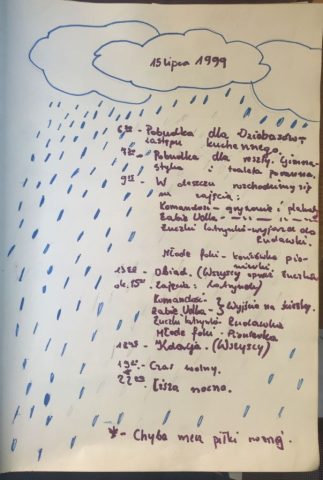 15 lipca 1999
6³⁰ - Pobudka dla
zastępu kuchennego.
7³⁰ - Pobudka dla reszty. Gimna-
styka i toaleta poranna.
9¹⁵ - W deszczu rozchodzimy się
na zajęcia:
Komandosi - grysowanie i plakaty
Babie Udka - —"— —"—
Żuczki Łatynki - wyjazd do
Żuławki.
Młode foki - końcówka pio-
nierki.
13⁰⁰ - Obiad. (Wszyscy oprócz Żuczków
ok. 15⁰⁰ - Zajęcia:
Komandosi - } Wyjście na ścieżkę.
Babie Udka - }
Żuczki Łatynki - Żuławka
Młode foki - Pionierka
18⁴⁵ - Kolacja. (Wszyscy)
19⁴⁵ - Czas wolny.
22⁰⁰ - Cisza nocna.
* - Chyba mecz piłki nożnej.